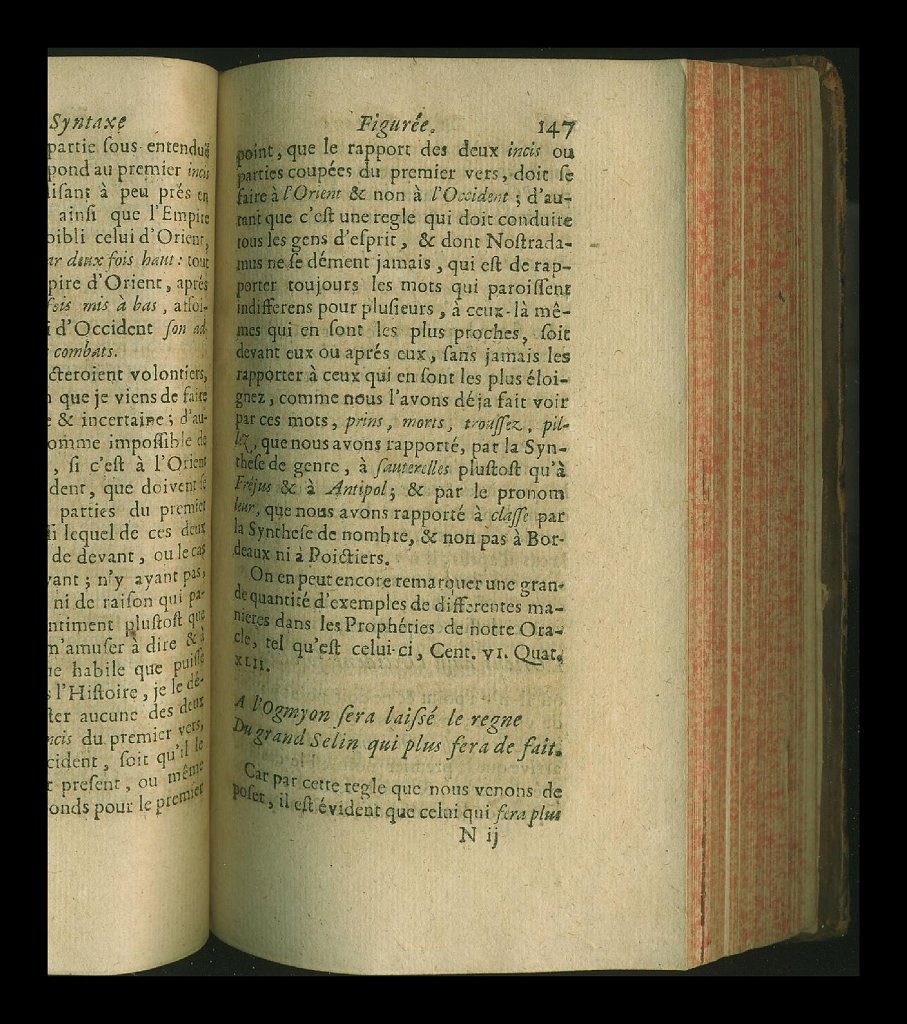 Syntaxe
partie ſous entenduë
pond au premier incis
iſant à peu prés en
ainſi que l'Empire
oibli celui d'Orient,
ar deux fois haut: tout
pire d'Orient, aprés
fois mis à bas, affoi-
d'Occident ſon ad
combats.
cteroient volontiers,
que je viens de faire
& incertaine; d'au-
omme impoſſible de
, ſi c'eſt à l'Orient
dent, que doivent ſe
parties du premier
ſi lequel de ces deux
de devant, ou le cas
vant; n'y ayant pas,
ni de raiſon qui pa-
ntiment pluſtoſt que
m'amuſer à dire & à
ne habile que puiſſe
l'Hiſtoire, je le dé-
ter aucune des deux
ncis du premier vers,
cident, ſoit qu'il le
t preſent, ou même
onds pour le premier
Figurée. 147
point, que le rapport des deux incis ou
parties coupées du premier vers, doit ſe
faire à l'Orient & non à l'Occident; d'au-
tant que c'eſt une regle qui doit conduire
tous les gens d'eſprit, & dont Noſtrada-
mus ne ſe dément jamais, qui eſt de rap-
porter toujours les mots qui paroiſſent
indifferens pour pluſieurs, à ceux-là mê-
mes qui en ſont les plus proches, ſoit
devant eux ou aprés eux, ſans jamais les
rapporter à ceux qui en ſont les plus éloi-
gnez, comme nous l'avons déja fait voir
par ces mots, prins, morts, trouſſez, pil-
lez, que nous avons rapporté, par la Syn-
theſe de genre, à ſauterelles pluſtoſt qu'à
Frejus & à Antipol; & par le pronom
leur, que nous avons rapporté à claſſe par
la Syntheſe de nombre, & non pas à Bor-
deaux ni à Poictiers.
On en peut encore remarquer une gran-
de quantité d'exemples de differentes ma-
nieres dans les Prophéties de notre Ora-
cle, tel qu'eſt celui-ci, Cent. VI. Quat.
XLII.
A l'Ogmyon ſera laiſſé le regne
Du grand Selin qui plus fera de fait.
Car par cette regle que nous venons de
poſer, il eſt évident que celui qui fera plus
N ij